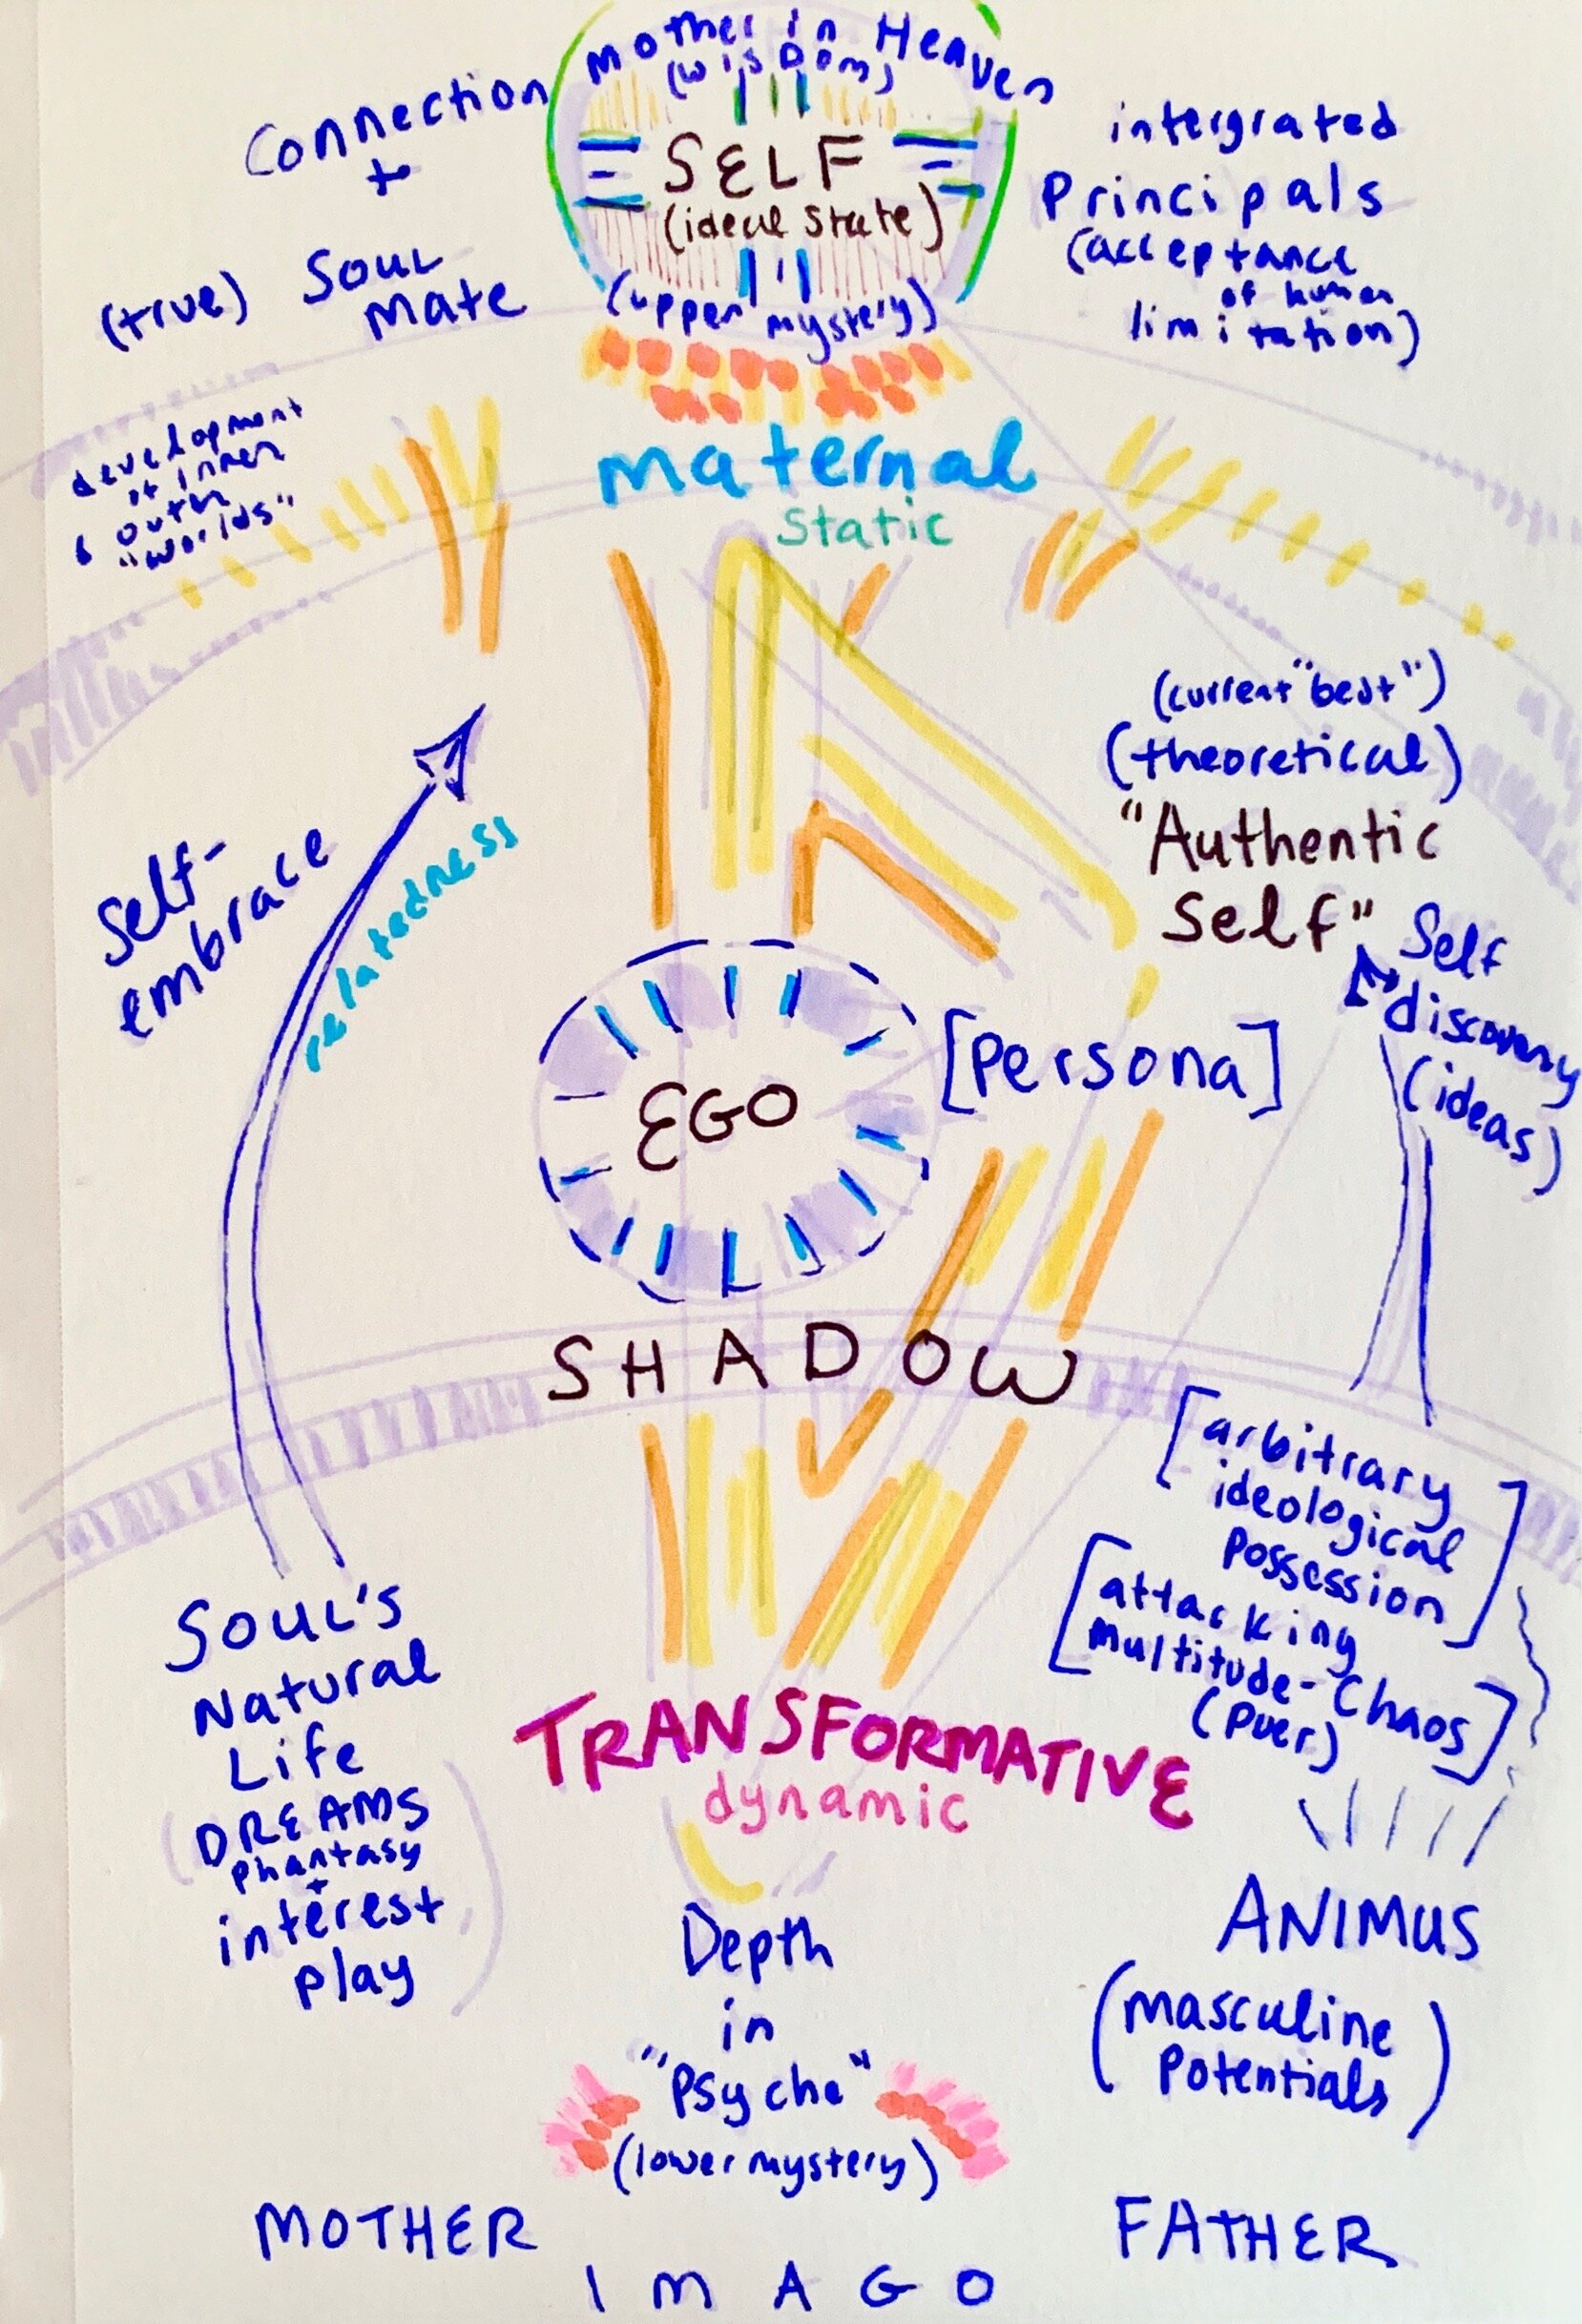 Mother in Heaven
(wisDom)
SELF
(ideal state)
(upper mystery)
Connection
+
(true) Soul
mate
intergrated
Principals
(acceptance
of human
limitation)
development
of inner
& outer
"worlds"
maternal
static
(current "best")
(theoretical)
"Authentic
Self"
Self
discovery
(ideas)
Self-
embrace
relatedness
EGO
[Persona]
SHADOW
[arbitrary
ideological
Possession]
[attacking
Multitude-Chaos]
(Puer)
SOUL'S
Natural
Life
(DREAMS
Phantasy
+
interest
play)
TRANSFORMATIVE
dynamic
Depth
in
"Psyche"
(lower mystery)
ANIMUS
(masculine
Potentials)
MOTHER
FATHER
IMAGO